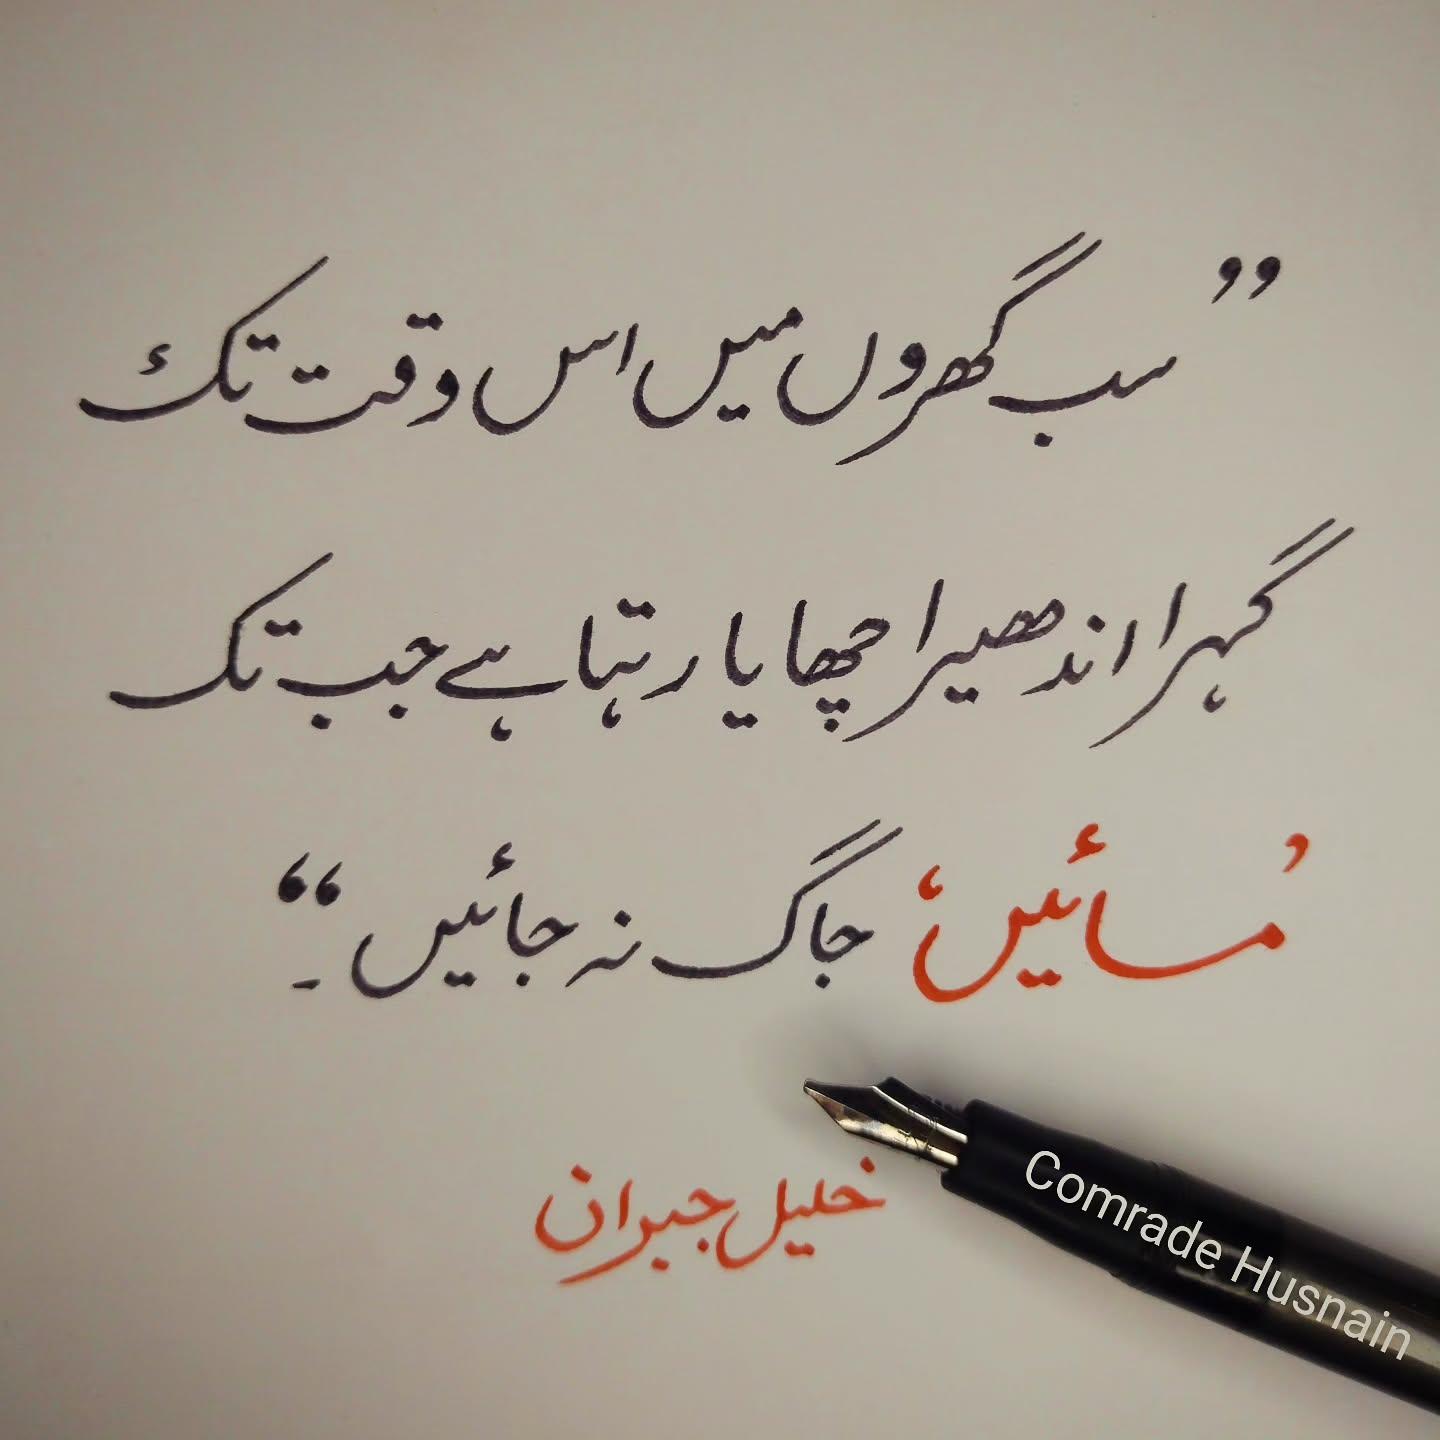 ”سب گھروں میں اس وقت تک
گہرا اندھیرا چھایا رہتا ہے جب تک
’مسائیں‘ جاگ نہ جائیں“۔
خلیل جبران
Comrade Husnain